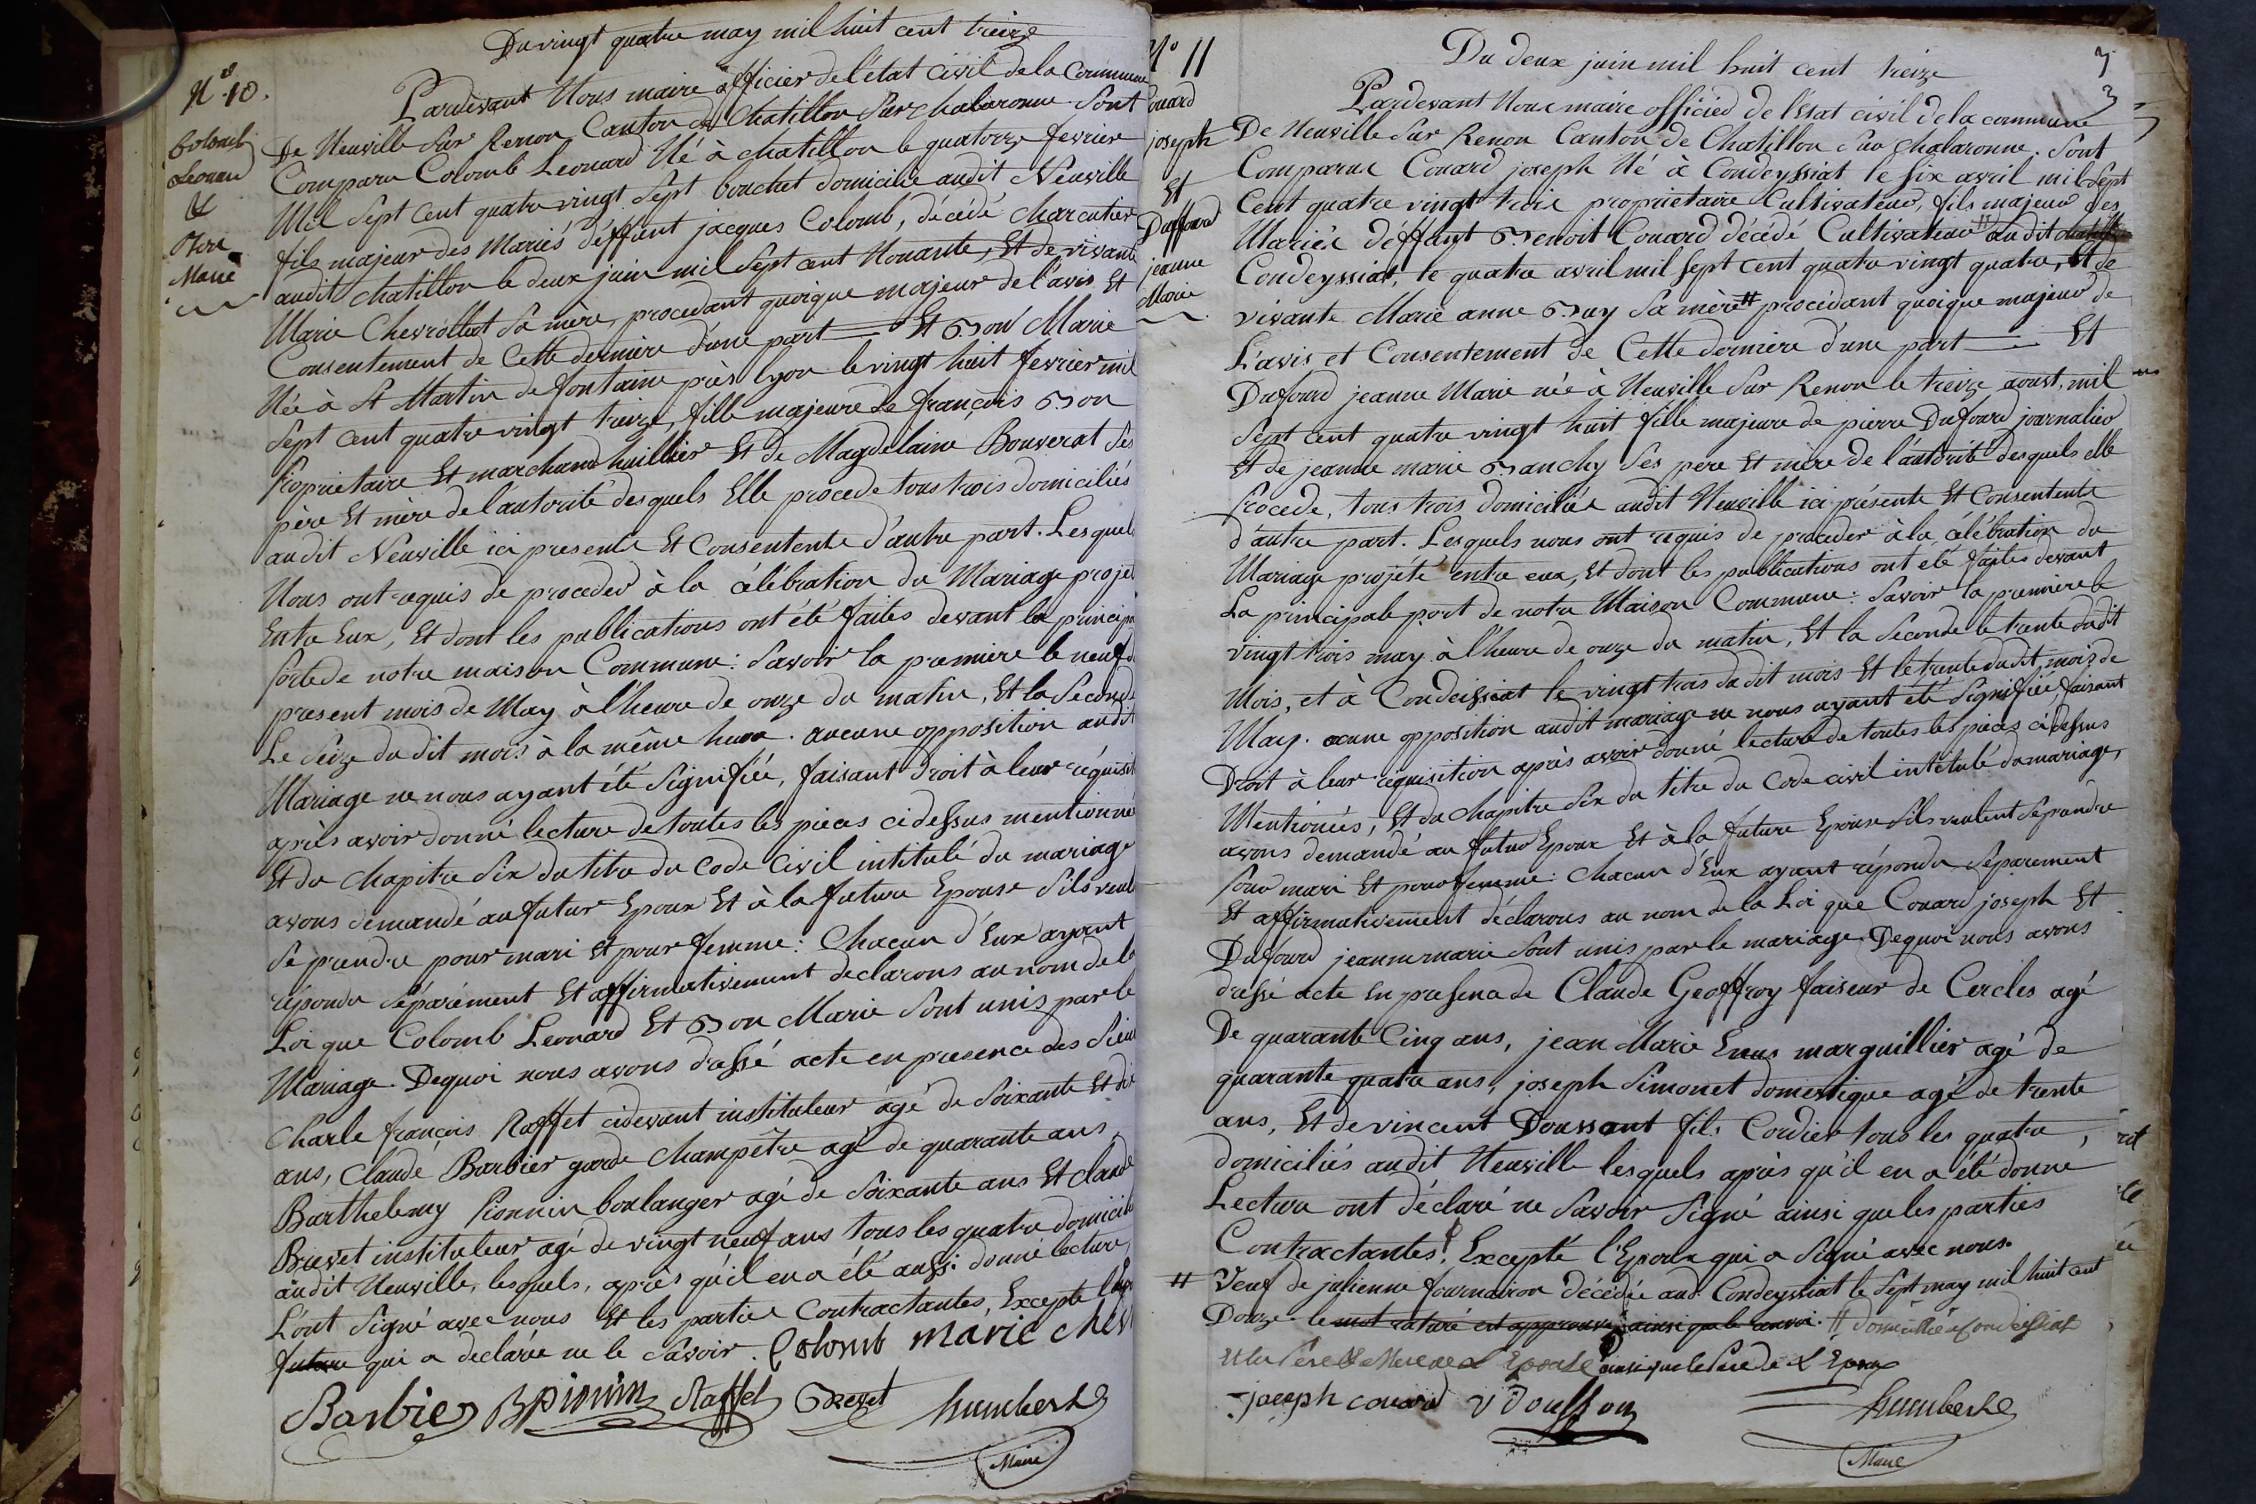 Du vingt quatre may mil huit cent treize
N° 10.
Colomb
Leonard
&
Bon
Marie
Pardevant Nous maire officier de l'état civil de la Commune
De Neuville sur Renon Canton de Chatillon sur chalaronne. Sont
Comparu Colomb Leonard Né à chatillon le quatorze fevrier
Mil sept cent quatre vingt sept bouchet domicilié audit Neuville
fils majeur des Mariés déffunt jacques Colomb, décédé charcutier
audit chatillon le deux juin mil sept cent Nonante, Et de vivante
Marie Chevrollet sa mere, procedant quoique majeur de l'avis Et
Consentement de Cette derniere d'une part — Et Bon Marie
Née à St Martin de fontaine près lyon le vingt huit fevrier mil
sept cent quatre vingt treize, fille majeure de françois Bon
Proprietaire Et marchand huillier Et de Magdelaine Bouverat Ses
père Et mère de l'autorité desquels Elle procede tous trois domiciliés
audit Neuville ici presente Et Consentente d'autre part. Lesquels
Nous ont requis de proceder à la célébration du Mariage projet
Entre Eux, Et dont les publications ont été faites devant la principa
porte de notre maison Commune: Savoir la premiere le neuf d
present mois de May à l'heure de onze du matin, Et la Seconde
Le Seize du dit mois à la même heure. aucune opposition audit
Mariage ne nous ayant été Signifiée, faisant droit à leur réquisit
après avoir donné lecture de toutes les pieces cidessus mentionné
Et du Chapitre Six du titre du Code Civil intitulé du mariage
avons demandé au futur Epoux Et à la future Epouse S'ils veul
Se prendre pour mari Et pour femme: Chacun d'Eux ayant
répondu Séparément Et affirmativement declarons au nom de la
Loi que Colomb Leonard Et Bon Marie Sont unis par le
Mariage. Dequoi nous avons dressé acte en presence des Sieur
Charle françois Raffet cidevant instituteur agé de Soixante Et dix
ans, Claude Barbier garde champêtre agé de quarante ans,
Barthelemy Pionnin boulanger agé de Soixante ans Et Claude
Brevet instituteur agé de vingt neuf ans tous les quatre domicilié
audit Neuville, lesquels, après qu'il en a été aussi donné lecture,
L'ont Signé avec nous Et les parties Contractantes, Excepté
future qui a declarée ne le Savoir. Colomb marie chev
Barbier BPionin Raffet Brevet humbert
Maire
N° 11
Couard
joseph
Et
Duffourd
jeanne
Marie
Du deux juin mil huit cent treize
3
Pardevant Nous maire officier de l'état civil de la commune
De Neuville sur Renon Canton de Chatillon sur Chalaronne. Sont
Comparue Couard joseph Né à Condeyssiat le six avril mil sept
Cent quatre vingt trois proprietaire Cultivateur, fils majeur des
Mariés déffunt Benoit Couard décédé Cultivateur audit
Condeyssiat, le quatre avril mil sept cent quatre vingt quatre, Et de
vivante Marie anne Buy Sa mère # procédant quoique majeur de
L'avis et Consentement de Cette derniere d'une part — Et
Dufourd jeanne Marie née à Neuville Sur Renon le treize aoust mil
Sept cent quatre vingt huit fille majeure de pierre Dufourd journalier
Et de jeanne marie Banchy Ses pere Et mère de l'autorité desquels elle
Procede, tous trois domiciliés audit Neuville ici présente Et Consentente
d'autre part. Lesquels nous ont requis de proceder à la célébration du
Mariage projété entre eux, Et dont les publications ont été faites devant
La principale port de notre Maison Commune: Savoir la premiere le
vingt trois may à l'heure de onze du matin, Et la Seconde le trente dudit
Mois, et à Condeissiat le vingt trois dudit mois Et le trente dudit mois de
May. aucune opposition audit mariage ne nous ayant été Signifiée, faisant
Droit à leur réquisition après avoir donné lecture de toutes les pieces cidessus
Mentionnées, Et du Chapitre Six du titre du Code civil intitulé du mariage,
avons demandé au futur Epoux Et à la future Epouse S'ils veulent Se prendre
pour mari Et pour femme: Chacun d'Eux ayant répondu Séparement
Et affirmativement déclarons au nom de la Loi que Couard joseph Et
Dufourd jeanne marie Sont unis par le mariage. Dequoi nous avons
dressé acte en presence de Claude Geoffroy faiseur de Cercles agé
De quarante Cinq ans, jean Marie Enus marguillier agé de
quarante quatre ans, joseph Simonet domestique agé de trente
ans, Et de vincent Doussant fils Cordier tous les quatre,
domiciliés audit Neuville lesquels après qu'il en a été donné
Lecture ont déclaré ne Savoir Signé ainsi que les parties
Contractantes! Excepté l'Epoux qui a Signé avec nous.
# Veuf de julienne fournairon décédée aud. Condeyssiat le Sept may mil huit cent
Douze. le mot raturé est approuvé ainsi que le renvoi. # domicilié à Condeissiat
Et la Père & Mere de L'Epouse ainsi que le Pere de L'Epoux
joseph couard V Doussan humbert
Maire